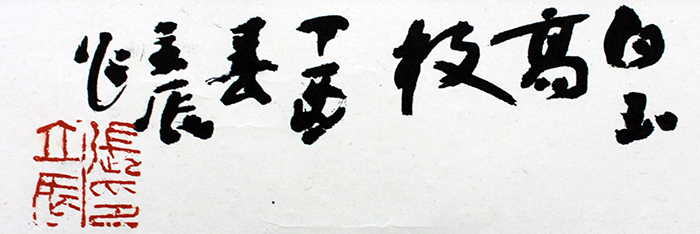 白玉高枝丁酉春立辰作
立辰